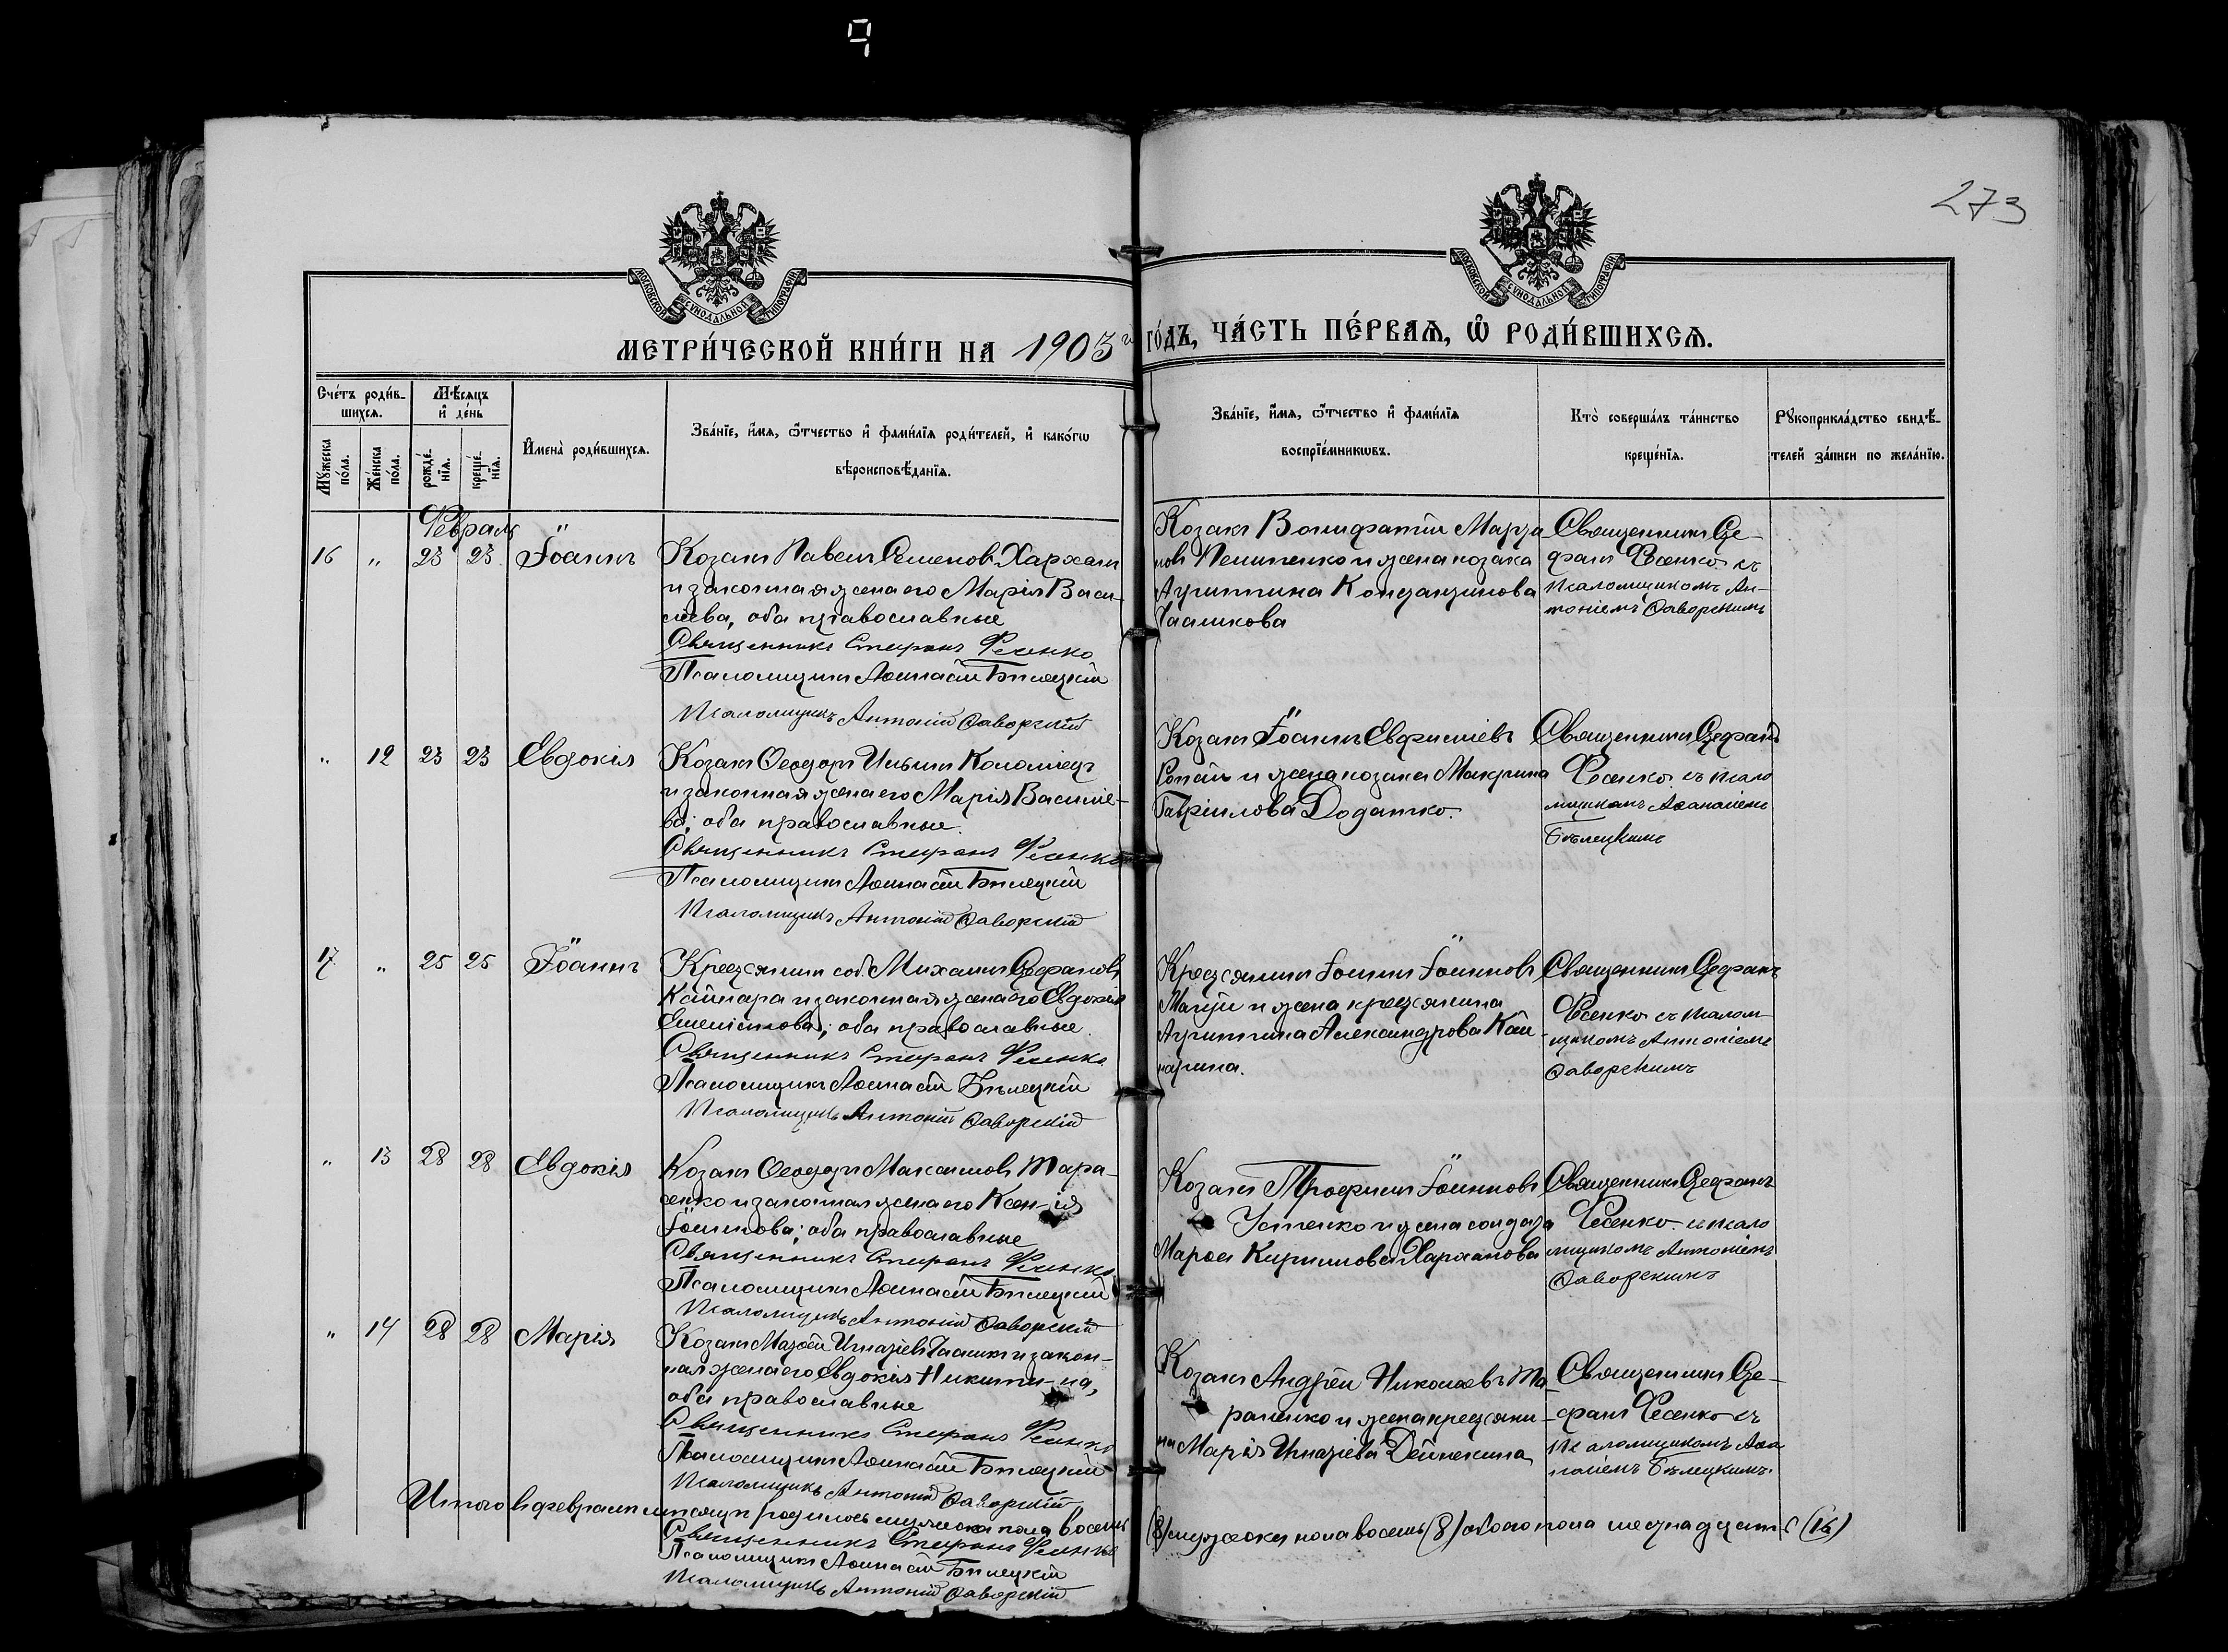 273
МЕТРИ́ЧЕСКОЙ КНИ́ГИ НА 1903 г. ГО́ДЪ, ЧА́СТЬ ПЕ́РВАѦ, Ѿ РОДИ́ВШИХСѦ.
МОСКОВСКОЙ СѴНОДАЛЬНОЙ ТИПОГРАФІИ
МОСКОВСКОЙ СѴНОДАЛЬНОЙ ТИПОГРАФІИ
Сче́тъ роди́в-
шихсѧ.
Мꙋжеска по́ла.
Же́нска по́ла.
Мѣ́сѧцъ
и҆ де́нь
рожде́-
нїѧ.
креще́-
нїѧ.
И҆мена̀ роди́вшихсѧ.
Зва́нїе, и҆́мѧ, ѻ҆́тчество и҆ фами́лїѧ роди́телей, и҆ како́гѡ
вѣроисповѣ́данїѧ.
Зва́нїе, и҆́мѧ, ѻ҆́тчество и҆ фами́лїѧ
воспрїе́мникѡвъ.
Кто̀ соверша́лъ та́инство
креще́нїѧ.
Рꙋкоприкла́дство свидѣ́-
телей за́писи по жела́нїю.
Февраль
16 " 23 23 Іоаннъ
Козакъ Павелъ Семеновъ Харханъ
и законная жена его Марія Васи-
лиева, оба православные
Священникъ Стефанъ Фесенко
Псаломщикъ Аѳанасій Бѣлецкій
Псаломщикъ Антоній Заворскій
Козакъ Вонифатій
и жена козака
Агрипина
Священникъ Сте-
фанъ Фесенко съ
псаломщикомъ Ан-
тоніемъ Заворскимъ
" 12 23 23 Евдокія
Козакъ Ѳеодоръ Ильинъ Коломіецъ
и законная жена его Марія Василіе-
ва; оба православные.
Священникъ Стефанъ Фесенко
Псаломщикъ Аѳанасій Бѣлецкій
Псаломщикъ Антоній Заворскій
Козакъ Іоаннъ
и жена козака Макрина
Гавріилова Додатко.
Священникъ Стефанъ
Фесенко съ псало
мщикомъ Аѳанасіемъ
Бѣлецкимъ
17 " 25 25 Іоаннъ
Крестянинъ соб. Михаилъ Стефановъ
и законная жена его Евдокія
оба православные.
Священникъ Стефанъ Фесенко
Псаломщикъ Аѳанасій Бѣлецкій
Псаломщикъ Антоній Заворскій
Крестянинъ Іоаннъ Іоанновъ
и жена крестянина
Агрипина Александрова
Священникъ Стефанъ
Фесенко съ псалом-
щикомъ Антоніемъ
Заворскимъ
" 13 28 28 Евдокія
Козакъ Ѳеодоръ Максимовъ Тара-
сенко и законная жена его Ксенія
Іоаннова; оба православные
Священникъ Стефанъ Фесенко
Псаломщикъ Аѳанасій Бѣлецкій
Псаломщикъ Антоній Заворскій
Козакъ Трофимъ Іоанновъ
Устенко и жена солдата
Марѳа Кириллова Харханова
Священникъ Стефанъ
Фесенко съ псало
мщикомъ Антоніемъ
Заворскимъ
" 14 28 28 Марія
Козакъ и закон-
ная жена его Евдокія Никити-на,
оба православные
Священникъ Стефанъ Фесенко
Псаломщикъ Аѳанасій Бѣлецкій
Псаломщикъ Антоній Заворскій
Козакъ Андрей Николаевъ Та-
раненко и жена крестяни-
на Марія Игнатіева Дейнекина
Священникъ Сте-
фанъ Фесенко съ
псаломщикомъ Аѳа
насіемъ Бѣлецкимъ.
Итого въ февралѣ мѣсяцѣ родилось мужеска пола восемь (8) женска пола восемь (8) обоего пола шестнадцать (16)
Священникъ Стефанъ Фесенко
Псаломщикъ Аѳанасій Бѣлецкій
Псаломщикъ Антоній Заворскій